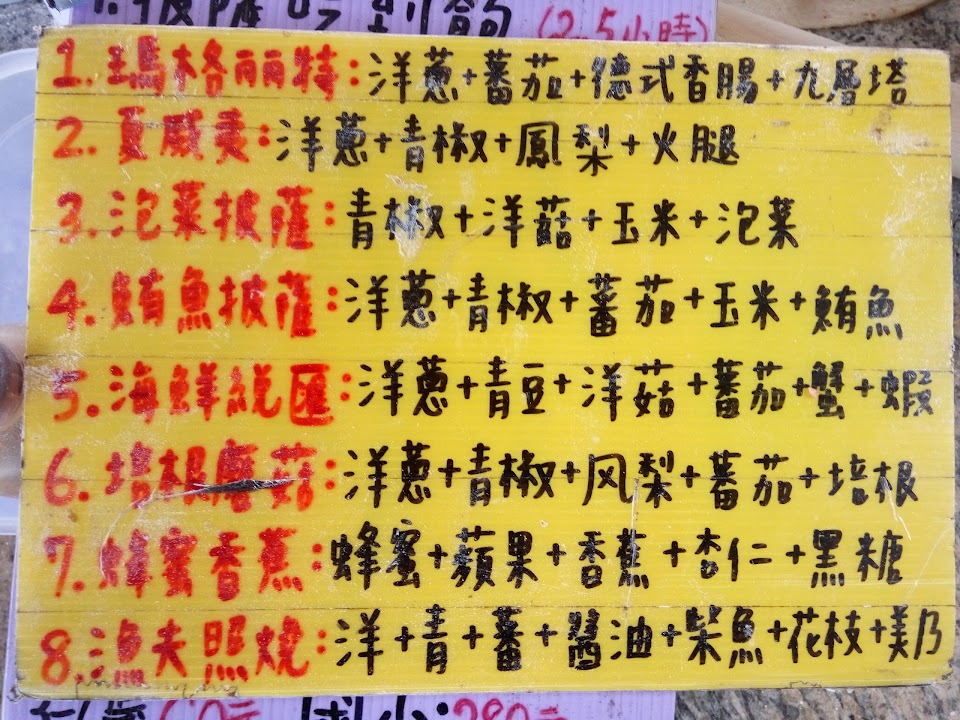 披薩吃到飽(2.5小時)
1.瑪格麗特:洋蔥+蕃茄+德式香腸+九層塔
2.夏威夷:洋蔥+青椒+鳳梨+火腿
3.泡菜披薩:青椒+洋菇+玉米+泡菜
4.鮪魚披薩:洋蔥+青椒+蕃茄+玉米+鮪魚
5.海鮮總匯:洋蔥+青豆+洋菇+蕃茄+蟹+蝦
6.培根蘑菇:洋蔥+青椒+凤梨+蕃茄+培根
7.蜂蜜香蕉:蜂蜜+蘋果+香蕉+杏仁+黑糖
8.漁夫照燒:洋+青+蕃+醬油+柴魚+花枝+美乃